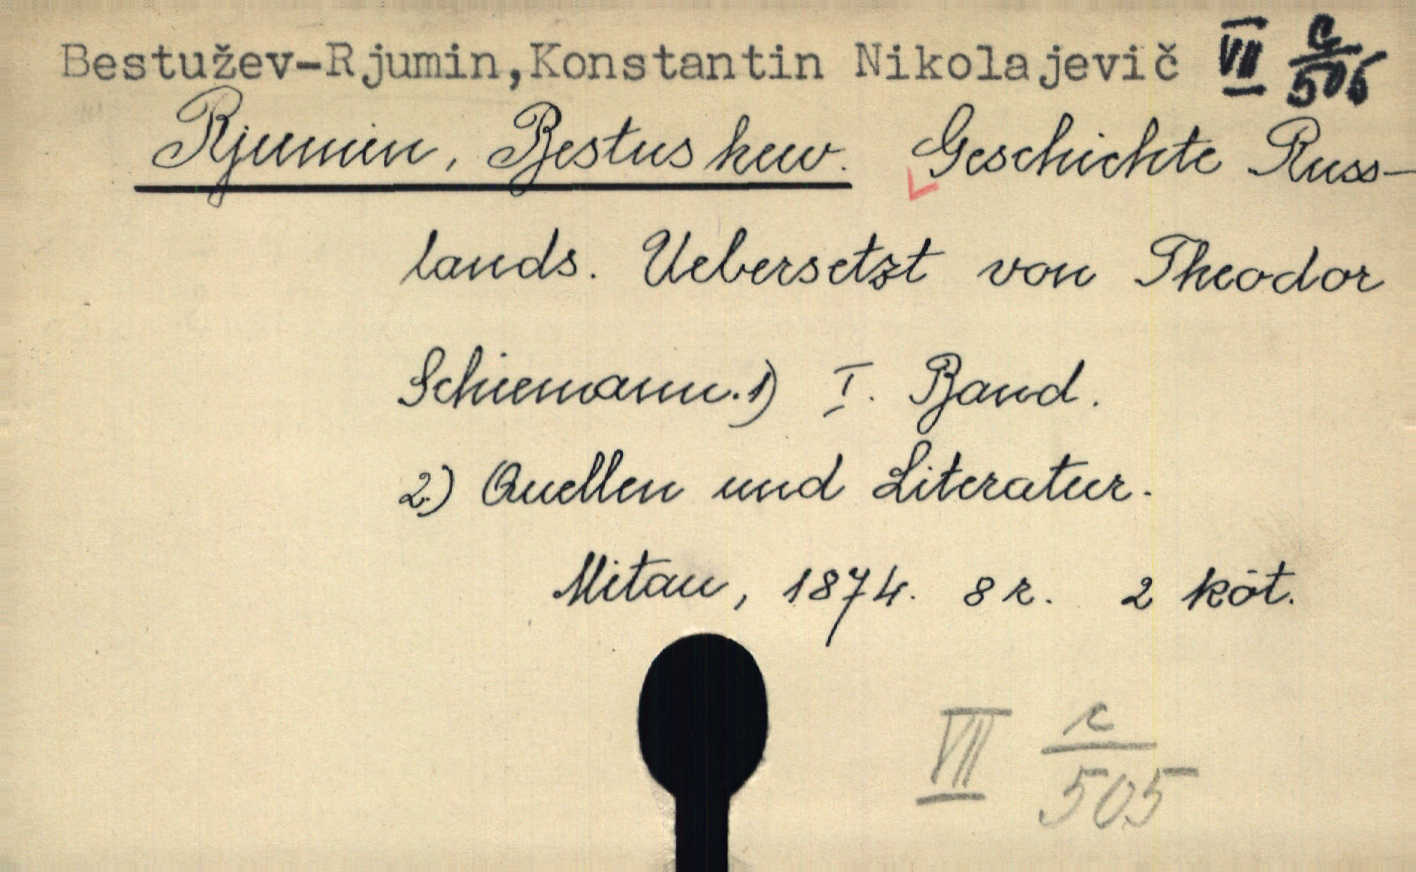 Bestužev-Rjumin,Konstantin Nikolajevič VII c/505
Rjumin, Bestuskew. Geschichte Russ-
lands. Uebersetzt von Theodor
Schiemann. 1) I. Band.
2) Quellen und Literatur.
Mitau, 1874. 8 r. 2 köt.
VII c/505